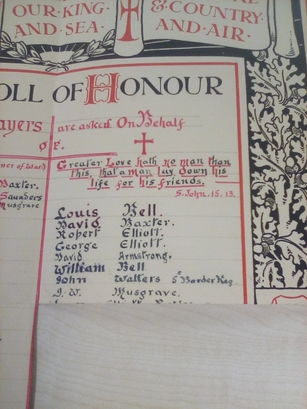 OUR·KING· & COUNTRY·
AND·SEA. AND·AIR·
OLL OF HONOUR
ayers are asked On Behalf
OF.
Greater Love hath no man than
this, that a man lay down his
life for his friends.
S. John. 15. 13.
ner of War)
Baxter.
Saunders
Musgrave
Louis Bell.
David Baxter.
Robert Elliott.
George Elliott.
David Armstrong.
William Bell
John Walters 5th Border Reg
J. W. Musgrave.